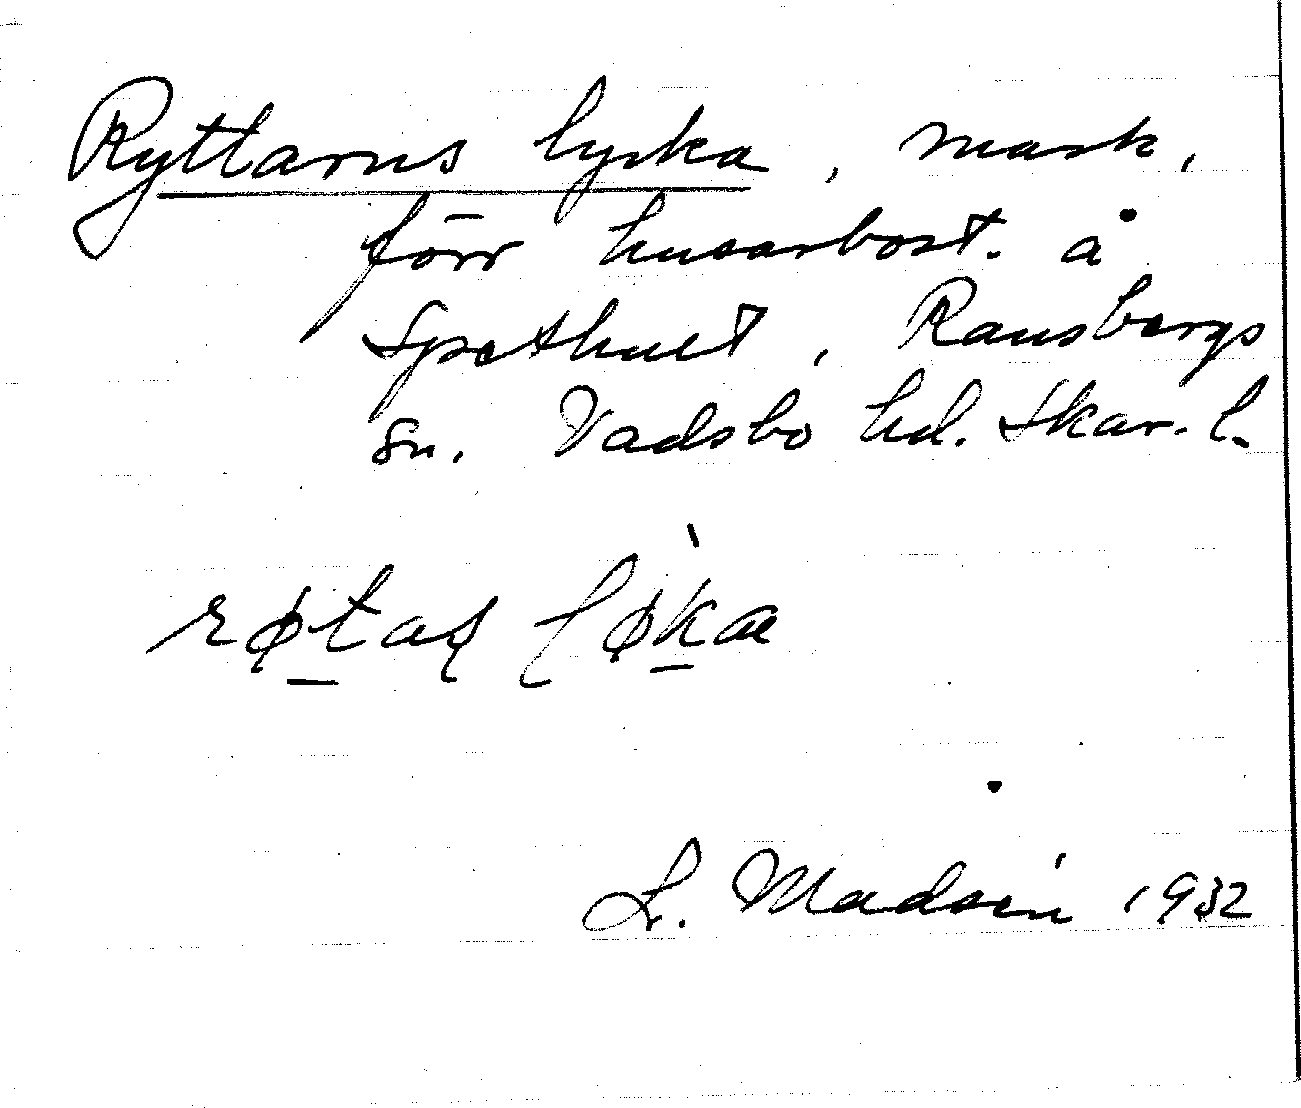 Ryttarns lycka, mark,
förr husarbost. å
Spethult, Ransbergs
sn. Vadsbo hd. Skar. l.
L. Madsén 1932